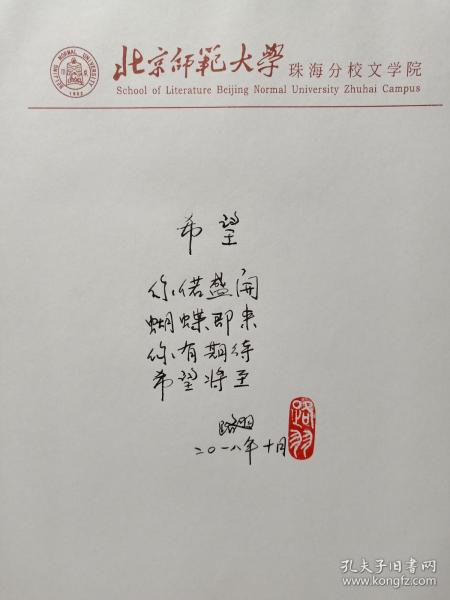 北京師範大學 珠海分校文学院
School of Literature Beijing Normal University Zhuhai Campus
BEIJING NORMAL UNIVERSITY
1902
希望
你若盛开
蝴蝶即来
你有期待
希望将至
路羽
二〇一八年十月
路羽
孔夫子旧书网
www.kongfz.com